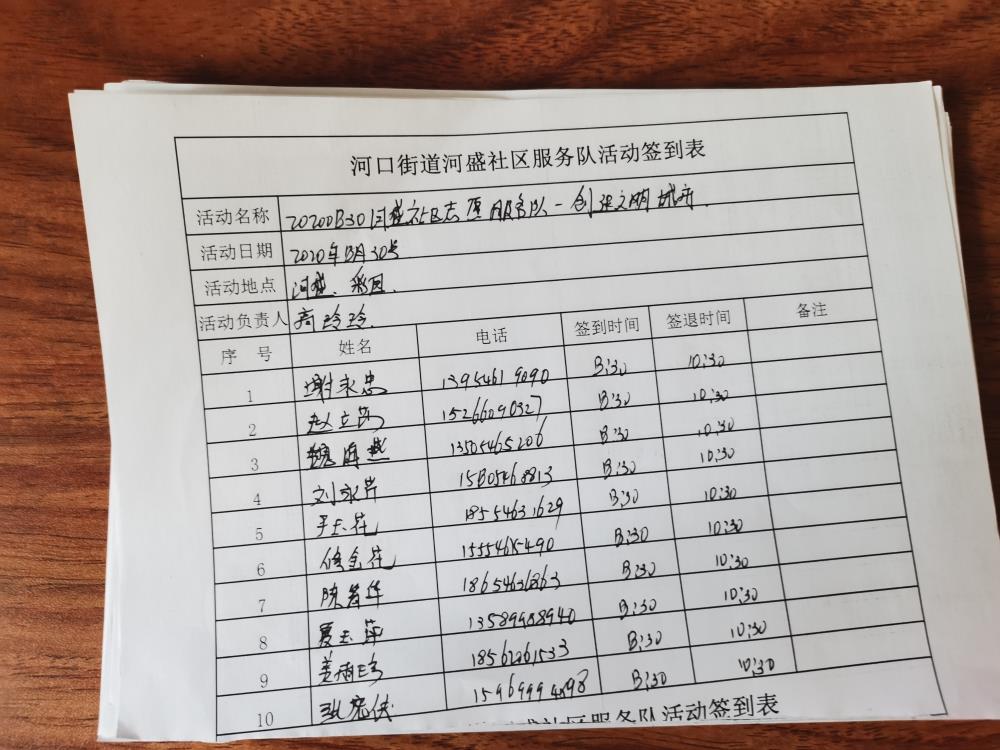 河口街道河盛社区服务队活动签到表
活动名称 20200830河盛社区志愿服务队-创建文明城市.
活动日期 2020年8月30号
活动地点 河盛、彩园.
活动负责人 高玲玲.
序 号 姓名 电话 签到时间 签退时间 备注
1 谢永忠 13954619090 8:30 10:30
2 赵立芬 15266090327 8:30 10:30
3 魏海燕 13505465206 8:30 10:30
4 刘永芹 15805468813 8:30 10:30
5 于玉花 18554631629 8:30 10:30
6 金花 8:30 10:30
7 陈若华 18654636863 8:30 10:30
8 夏玉萍 13589988940 8:30 10:30
9 姜雨 18562061533 8:30 10:30
10 张宪伏 15969994898 8:30 10:30
社区服务队活动签到表